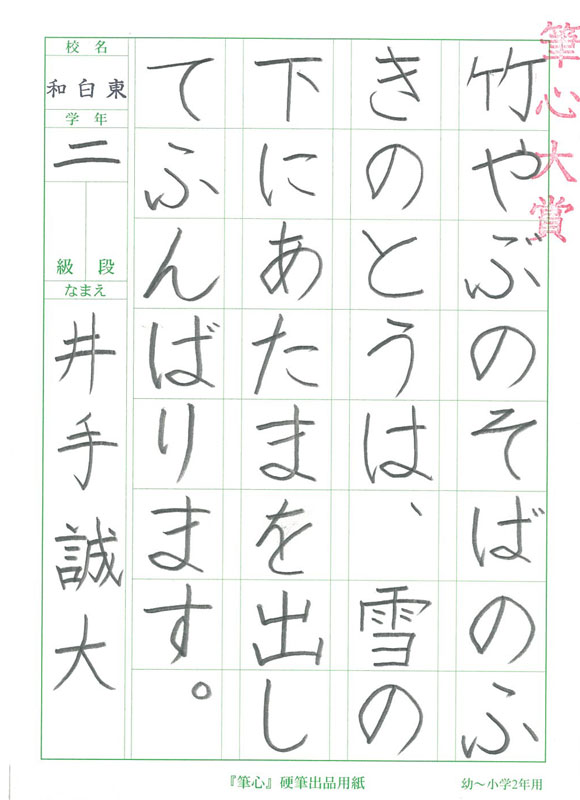 筆心大賞
竹やぶのそばのふ
きのとうは、雪の
下にあたまを出し
てふんばります。
校名
和白東
学年
二
段
級
なまえ
井手誠大
『筆心』硬筆出品用紙
幼～小学2年用